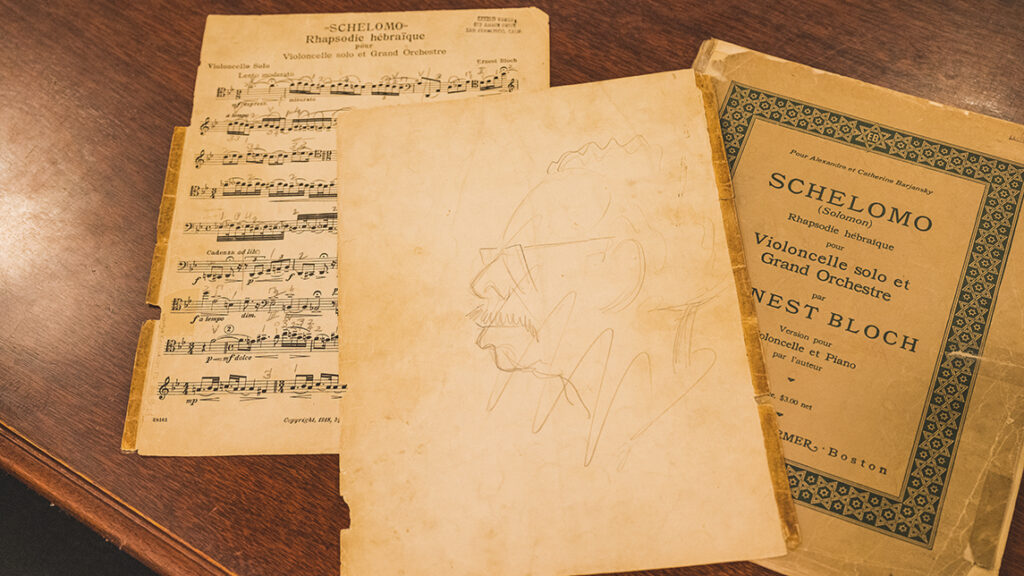 -SCHELOMO-
Rhapsodie hébraïque
pour
Violoncelle solo et Grand Orchestre
Violoncelle Solo
Ernest Bloch
Lento moderato
mf espress.
misurato
a tempo
Cadenza ad lib:
f a tempo
dim.
2
p
mf dolce
mp
Copyright, 1918,
Pour Alexandre et Catherine Barjansky
SCHELOMO
(Solomon)
Rhapsodie hébraïque
pour
Violoncelle solo et
Grand Orchestre
par
NEST BLOCH
Version pour
oloncelle et Piano
par l'auteur
$3.00 net
RMER · Boston